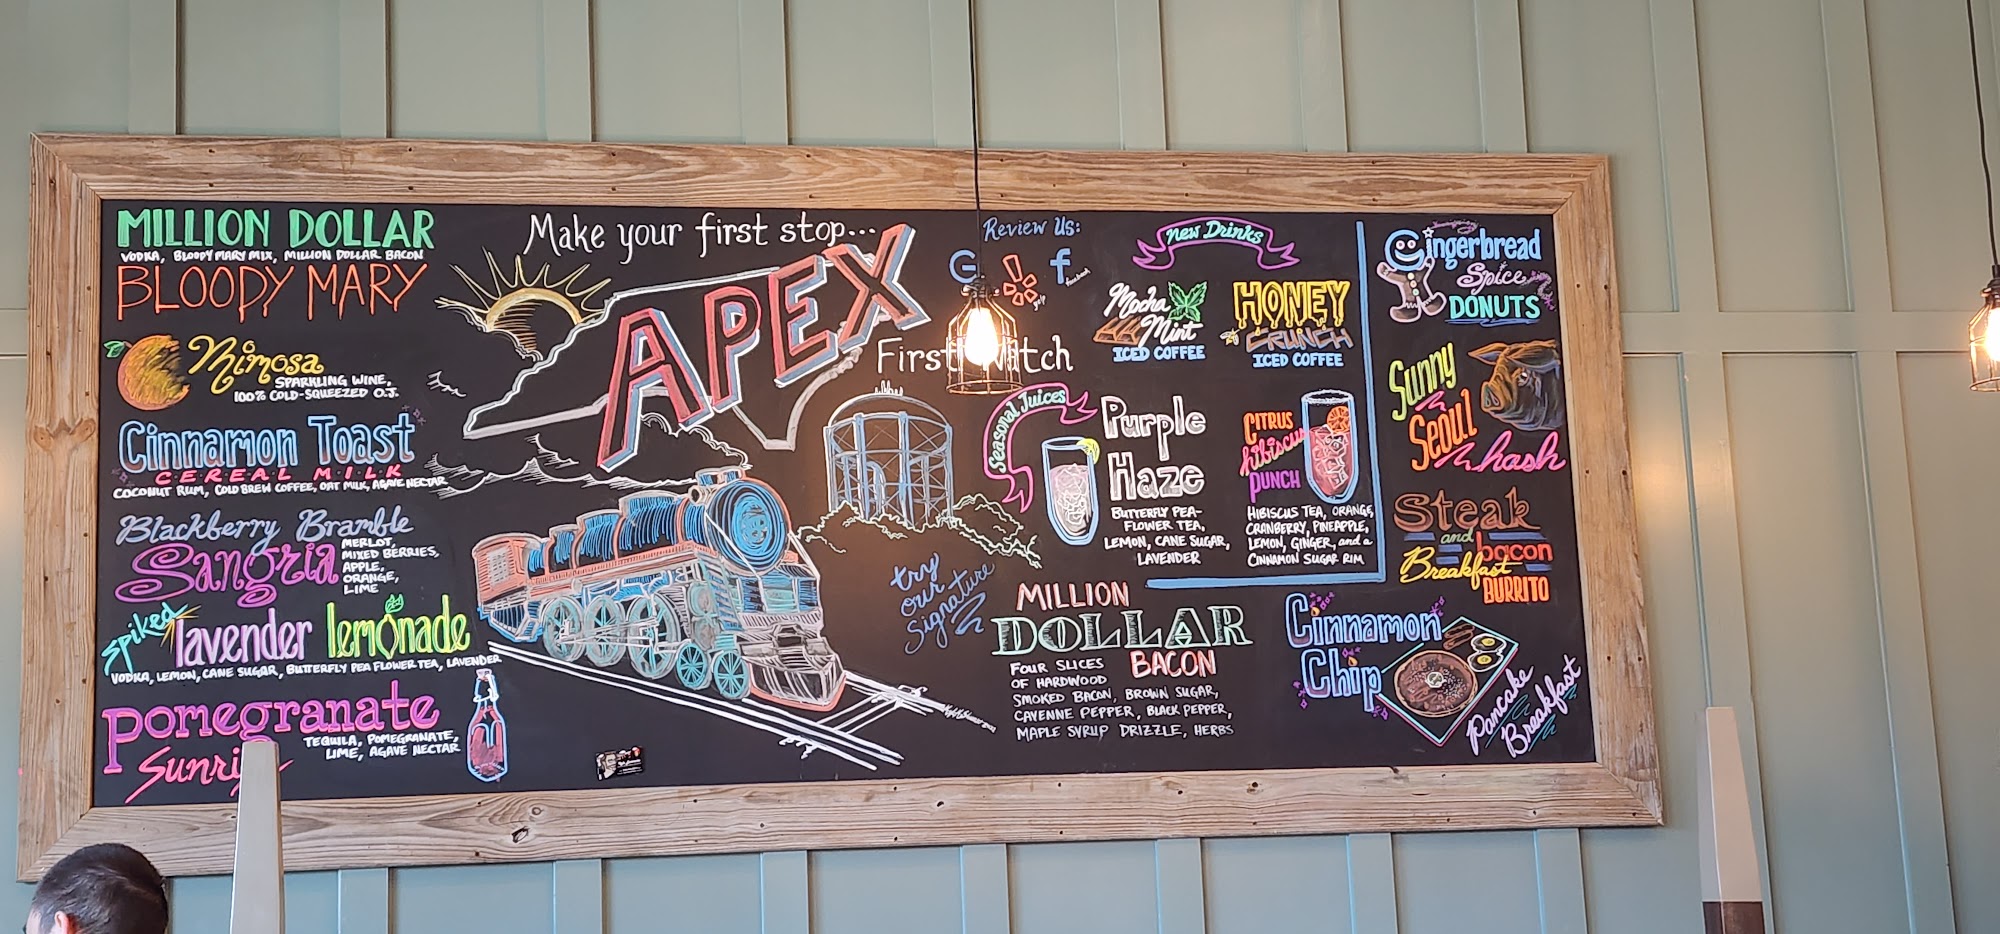 MILLION DOLLAR
VODKA, BLOODY MARY MIX, MILLION DOLLAR BACON
BLOODY MARY
Mimosa
SPARKLING WINE,
100% COLD-SQUEEZED O.J.
Cinnamon Toast
CEREAL MILK
COCONUT RUM, COLD BREW COFFEE, OAT MILK, AGAVE NECTAR
Blackberry Bramble
Sangria
MERLOT,
MIXED BERRIES,
APPLE,
ORANGE,
LIME
spiked lavender lemonade
VODKA, LEMON, CANE SUGAR, BUTTERFLY PEA FLOWER TEA, LAVENDER
pomegranate
Sunri
TEQUILA, POMEGRANATE,
LIME, AGAVE NECTAR
Make your first stop...
APEX
First Watch
try
our
signature
Review Us:
G
yelp
f
facebook
new Drinks
Mocha
Mint
ICED COFFEE
HONEY
CRUNCH
ICED COFFEE
Seasonal Juices
Purple
Haze
BUTTERFLY PEA-
FLOWER TEA,
LEMON, CANE SUGAR,
LAVENDER
CITRUS
hibiscus
PUNCH
HIBISCUS TEA, ORANGE,
CRANBERRY, PINEAPPLE,
LEMON, GINGER, and a
CINNAMON SUGAR RIM
MILLION
DOLLAR
BACON
FOUR SLICES
OF HARDWOOD
SMOKED BACON, BROWN SUGAR,
CAYENNE PEPPER, BLACK PEPPER,
MAPLE SYRUP DRIZZLE, HERBS
Gingerbread
Spice
DONUTS
Sunny
Seoul
hash
Steak
and bacon
Breakfast
BURRITO
Cinnamon
Chip
Pancake
Breakfast